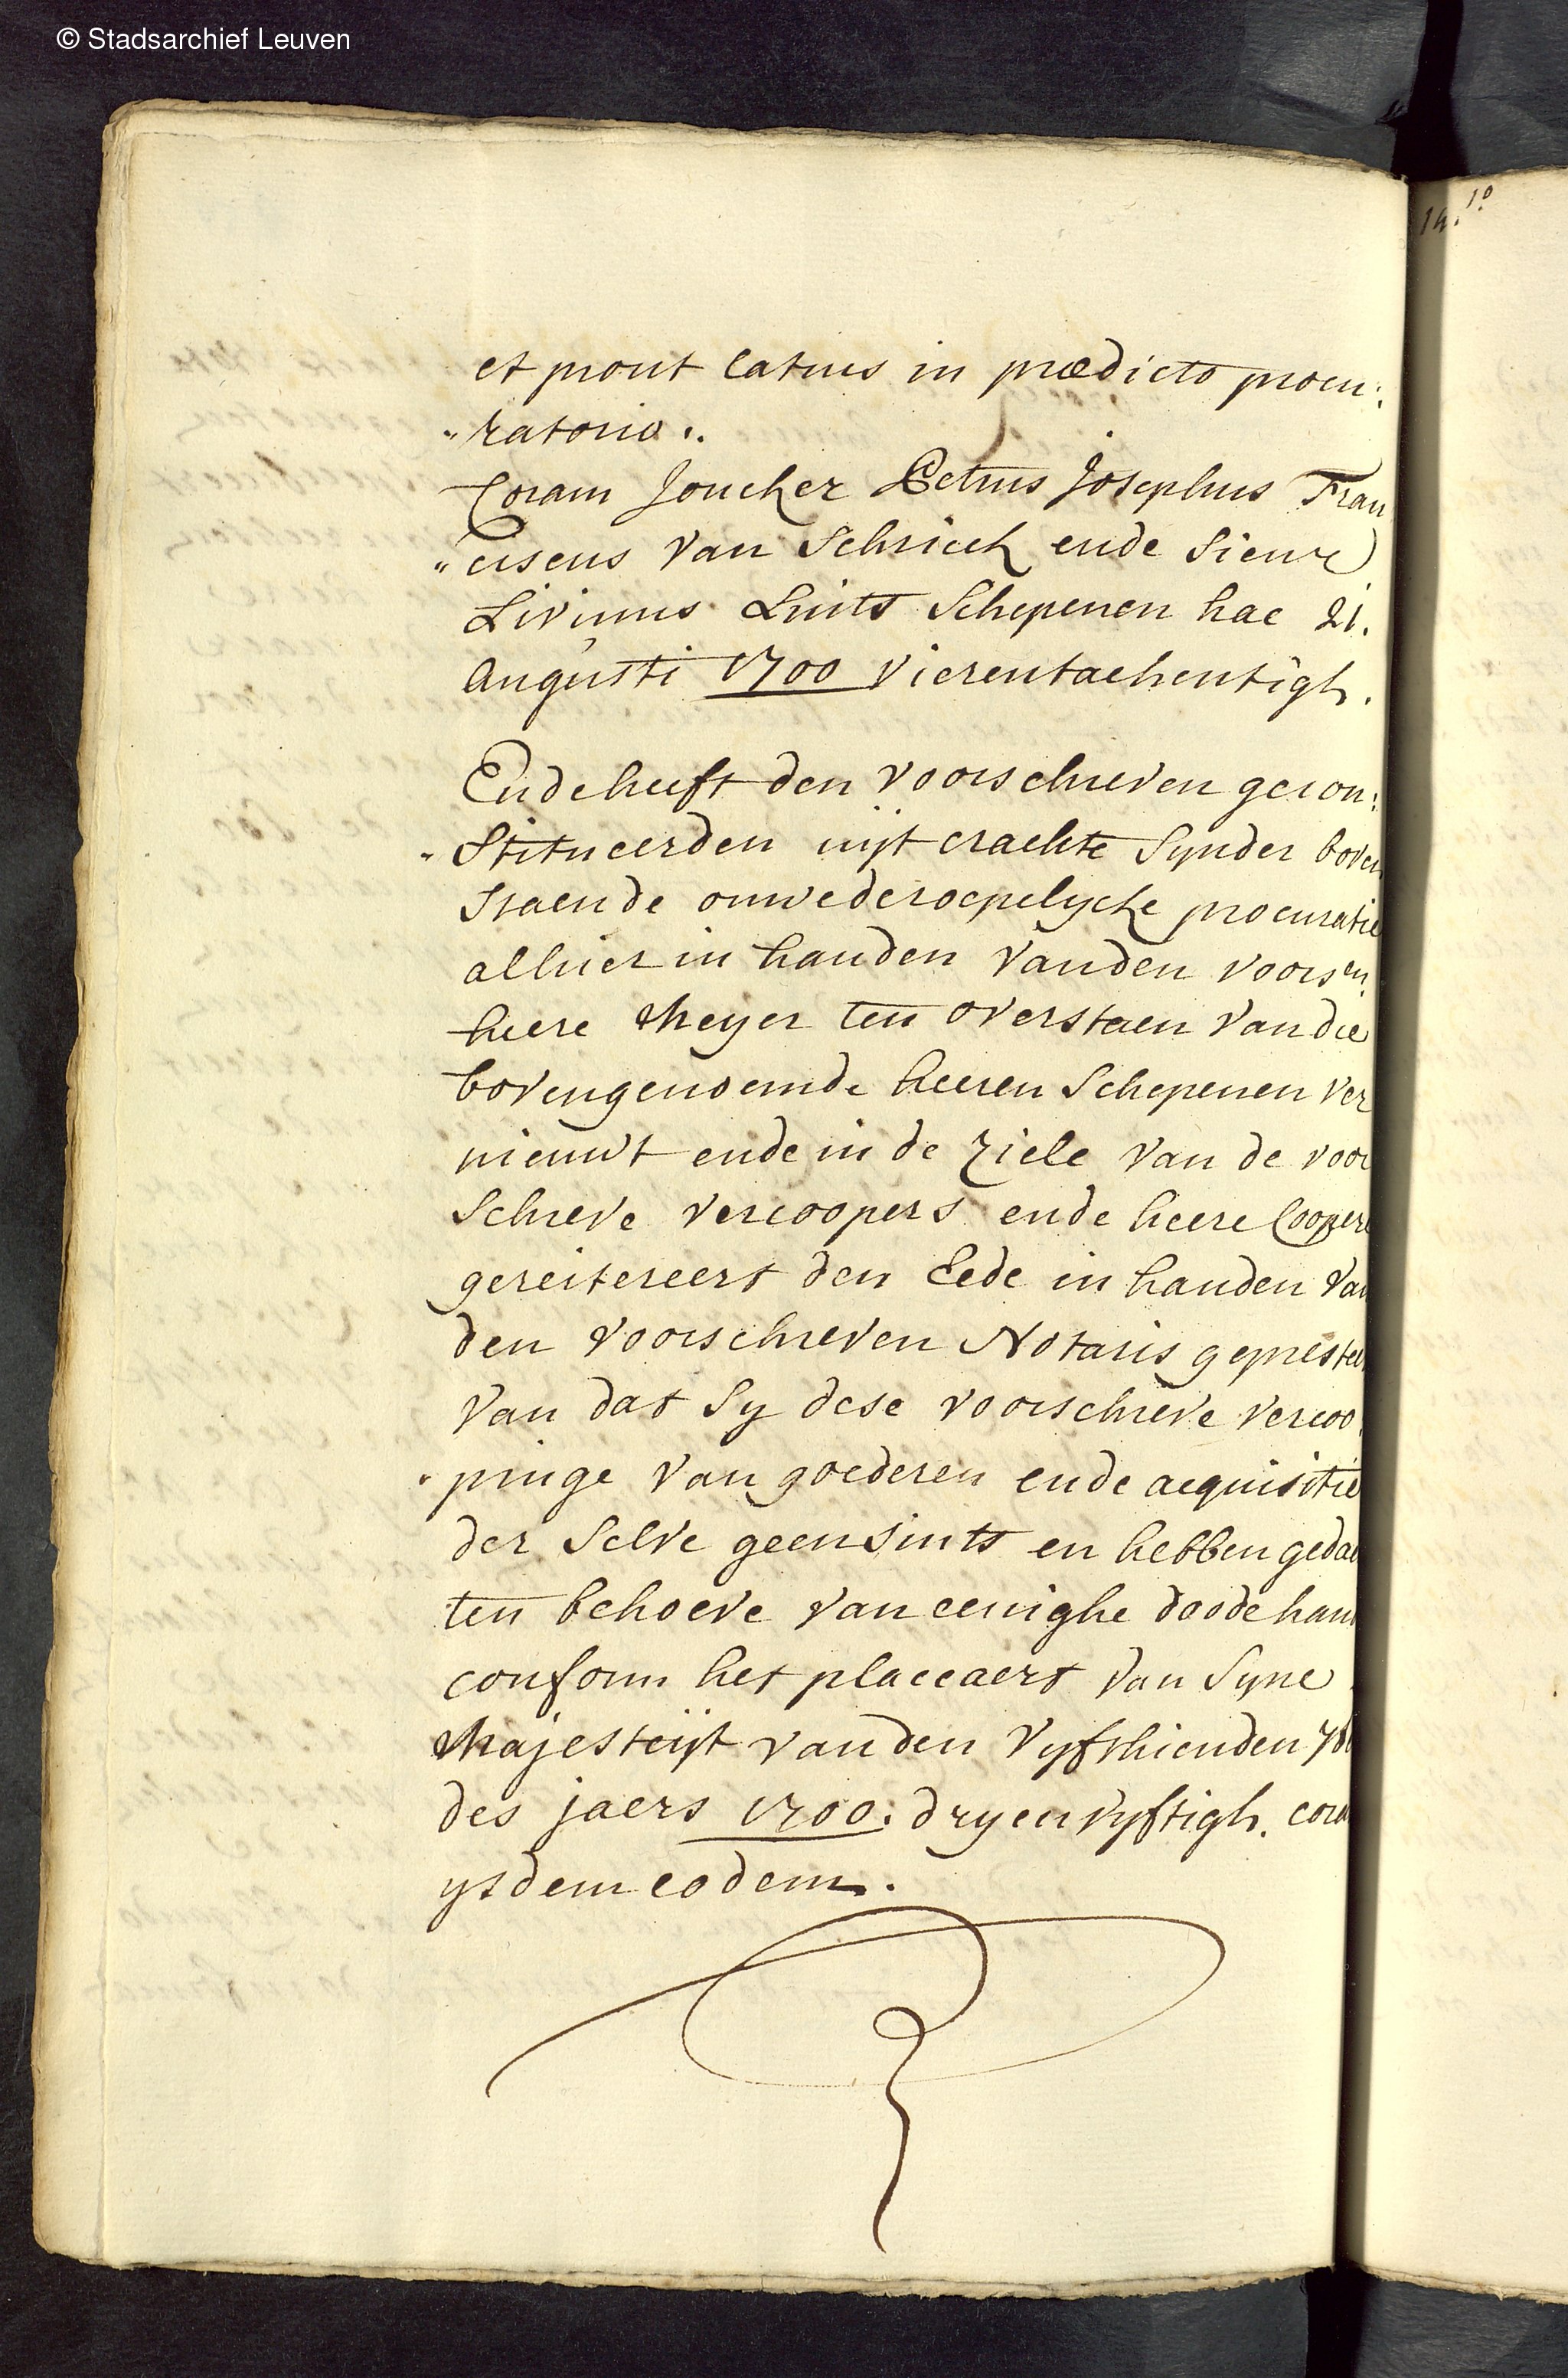 © Stadsarchief Leuven
14. 1º
et prout latius in prædicto procu:
"ratorio.
Coram Joncker Petrus Josephus Fran
"ciscus van Schrieck ende Sieur
Livinus Luits Schepenen hac 21.
Augusti 1700 vierentachentigh.
Ende heeft den voorschreven gecon:
"stitueerden uijt crachte Synder boven
staende onwederoepelycke procuratie
alhier in handen vanden voorsen
heere Meyer ten overstaen van die
bovengenoemde heeren Schepenen ver
nieuwt ende in de ziele van de voor
Schreve vercoopers ende heere Cooper
gereitereert den Eede in handen van
den voorschreven Notaris gepresteer
van dat Sy dese voorschreve vercoo
"pinge van goederen ende acquisitie
der Selve geensints en hebben gedae
ten behoeve van eenighe doode han
conform het placcaert van Syne
Majesteijt vanden vyfthienden 7b
des jaers 1700. dryenvyftigh. cora
ysdem eodem.